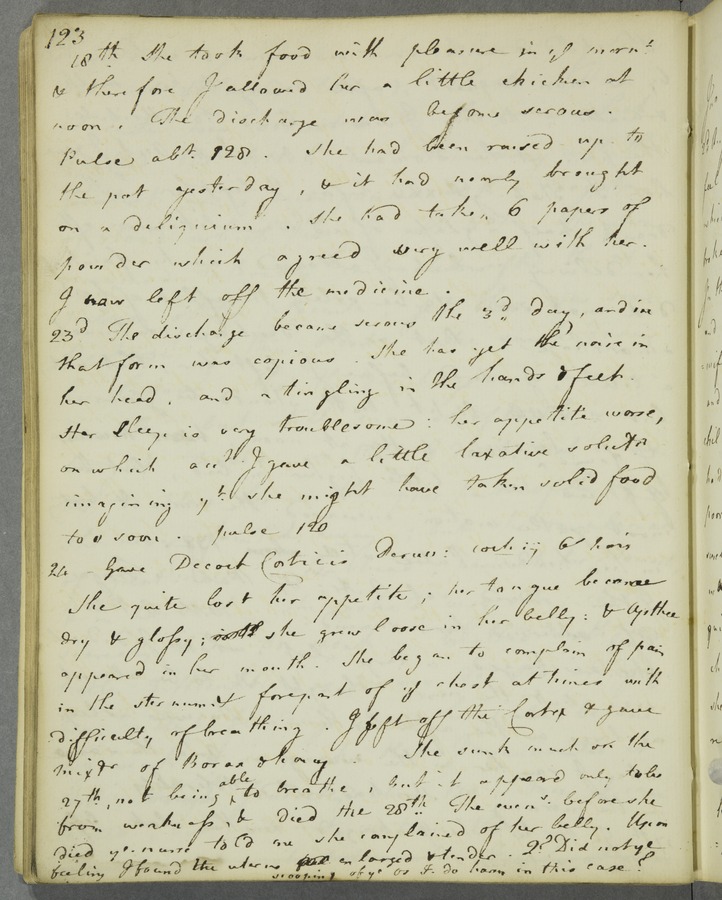 123
18th She took food with pleasure in ye mornt
& therefore I allowed her a little chicken at
noon. The discharge was before serous.
Pulse abt. 128. She had been raised up to
the pot yesterday, & it had nearly brought
on a deliquium. She had taken 6 papers of
powder which agreed very well with her.
I now left off the medicine.
23d The discharge became serous the 3d day, and in
that form was copious. She has yet the noise in
her head, and a tingling in the hands & feet.
Her sleep is very troublesome: her appetite worse,
on which acct. I gave a little laxative solutn
imagining yt. she might have taken solid food
too soon. pulse 120
24 Gave Decoct Corticis 6 hors
She quite lost her appetite; her tongue became
dry & glossy; she grew loose in her belly: & Apthae
appeared in her mouth. She began to complain of pain
in the sternum & forepart of ye chest at times with
difficulty of breathing. I left off the Cortex & gave
mixtr of Borax & honey. She sunk much on the
27th, not being able to breathe, but it appeard only to be
from weakness, & died the 28th. The eveng. before she
died ye nurse told me she complained of her belly. Upon
feeling I found the uterus enlarged & tender. Q? Did not ye
scooping of ye os t. do harm in this case?